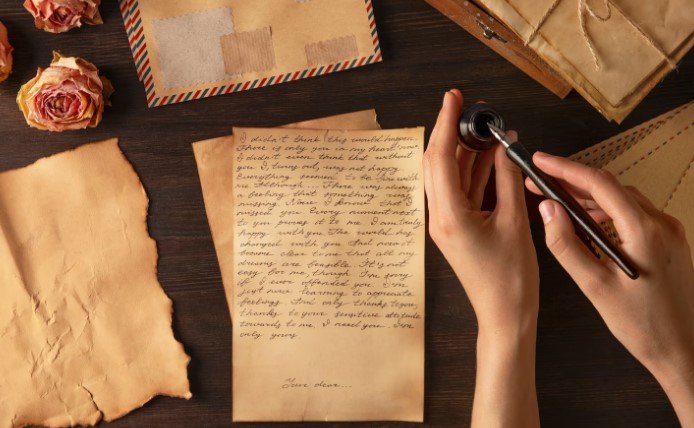 I didn't think this would happen.
There is only you in my heart now.
I didn't even think that without
you I, turns out, was not happy
Everything seemed to be fine with
me. Although... There was always
a feeling that something was
missing. Now I know that I
missed you. Every moment next
to you proves it to me. I am truly
happy with you. The world has
changed with you. And now it
became clear to me that all my
dreams are feasible. It's not
easy for me, though. I'm sorry
if I ever offended you. I'm
just now learning to appreciate
feelings. And only thanks to you,
thanks to your sensitive attitude
towards to me. I need you. I'm
only yours
Your dear...